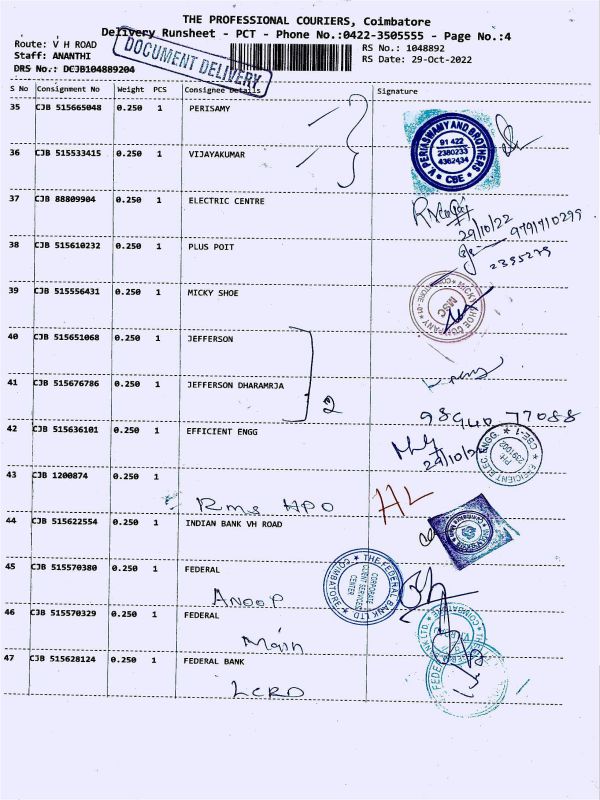 THE PROFESSIONAL COURIERS, Coimbatore
Delivery Runsheet - PCT - Phone No.:0422-3505555 - Page No.:4
Route: V H ROAD
RS No.: 1048892
Staff: ANANTHI
RS Date: 29-Oct-2022
DRS No.: DCJB104889204
DOCUMENT DELIVERY
S No Consignment No Weight PCS Consignee Details Signature
35 CJB 515665048 0.250 1 PERISAMY
V PERIASWAMY AND BROTHERS
91 422
2380233
4362434
* CBE *
36 CJB 515533415 0.250 1 VIJAYAKUMAR
37 CJB 88809904 0.250 1 ELECTRIC CENTRE
29/10/22
9791710299
38 CJB 515610232 0.250 1 PLUS POIT
2395279
39 CJB 515556431 0.250 1 MICKY SHOE
MICKY SHOE COMPANY
MSC
40 CJB 515651068 0.250 1 JEFFERSON
41 CJB 515676786 0.250 1 JEFFERSON DHARAMRJA
2
98940 77088
42 CJB 515636101 0.250 1 EFFICIENT ENGG
EFFICIENT ELEC ENGG. * CBE-1 *
PH:
2391002
43 CJB 1200874 0.250 1
Rms HPO
HL
44 CJB 515622554 0.250 1 INDIAN BANK VH ROAD
45 CJB 515570380 0.250 1 FEDERAL
Anoop
THE FEDERAL BANK LTD * COIMBATORE *
CORPORATE
CLIENT SERVICES
CENTER
46 CJB 515570329 0.250 1 FEDERAL
Main
47 CJB 515628124 0.250 1 FEDERAL BANK
LCRD